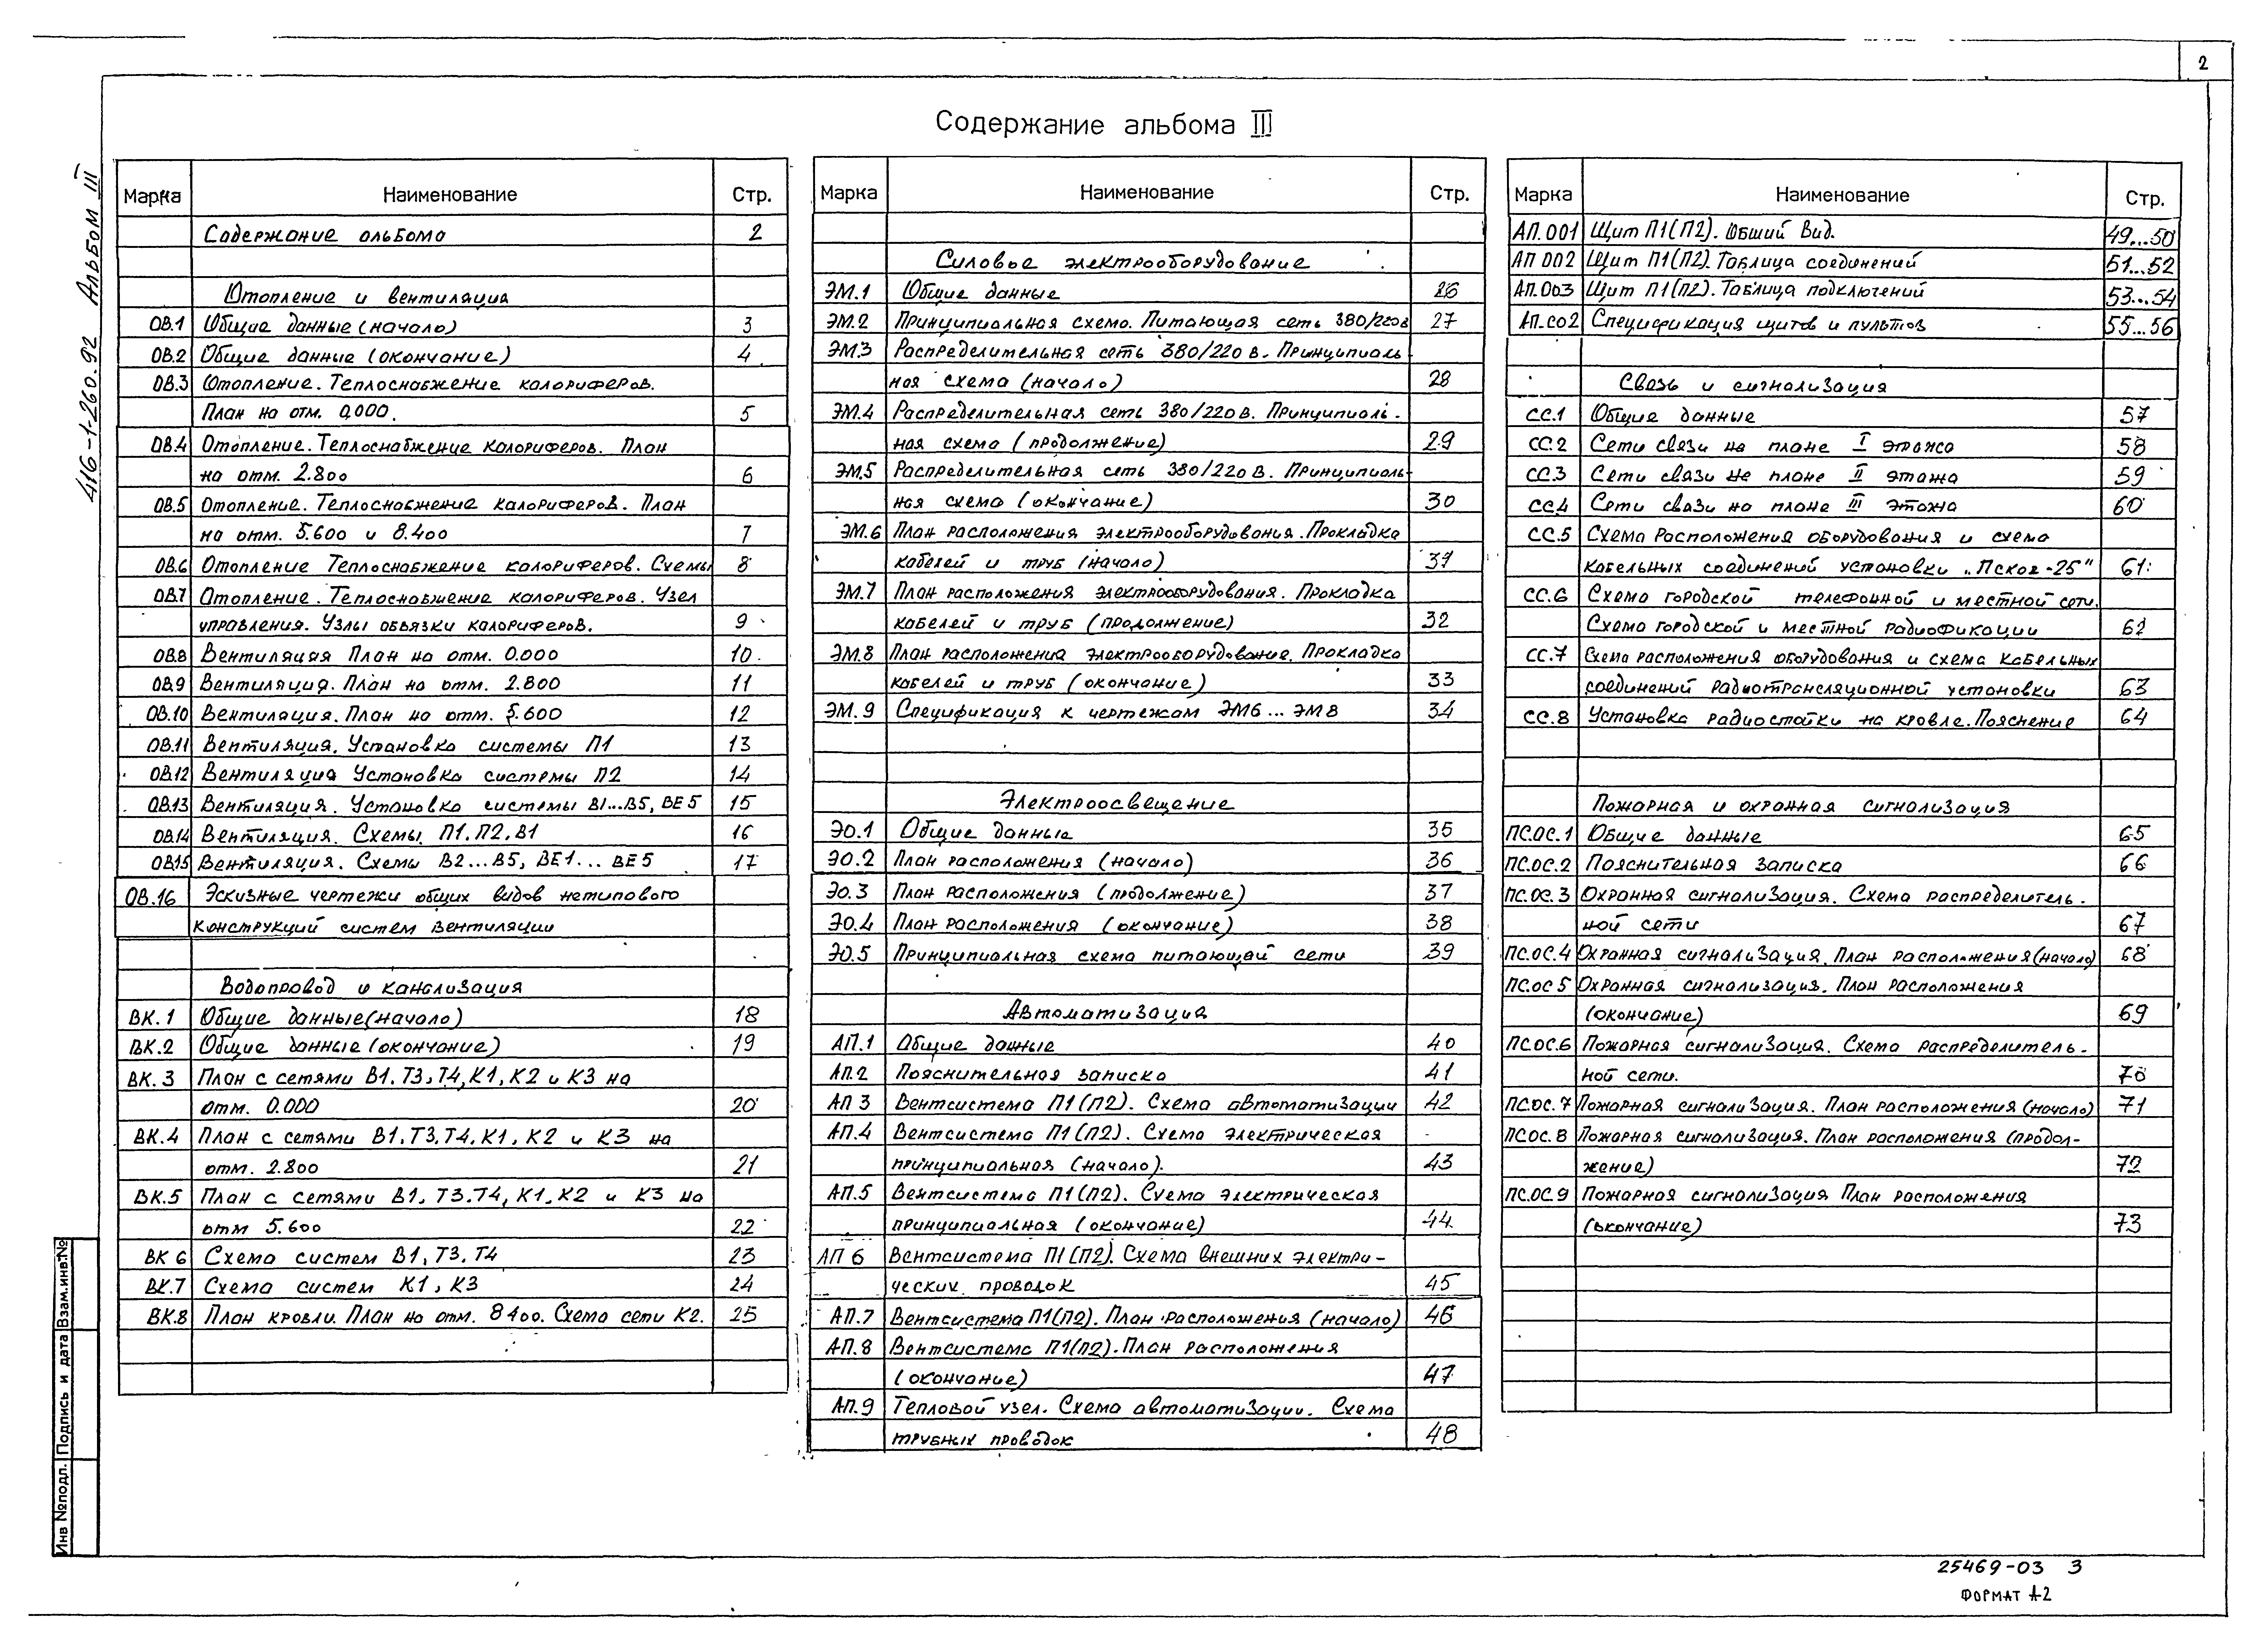 2
Содержание альбома III
416-1-260.92 Альбом III
Марка Наименование Стр.
Содержание альбома 2
Отопление и вентиляция
ОВ.1 Общие данные (начало) 3
ОВ.2 Общие данные (окончание) 4
ОВ.3 Отопление. Теплоснабжение калориферов.
План на отм. 0,000. 5
ОВ.4 Отопление. Теплоснабжение калориферов. План
на отм. 2.800 6
ОВ.5 Отопление. Теплоснабжение калориферов. План
на отм. 5.600 и 8.400 7
ОВ.6 Отопление Теплоснабжение калориферов. Схемы 8
ОВ.7 Отопление. Теплоснабжение калориферов. Узел
управления. Узлы обвязки калориферов. 9
ОВ.8 Вентиляция План на отм. 0.000 10
ОВ.9 Вентиляция. План на отм. 2.800 11
ОВ.10 Вентиляция. План на отм. 5.600 12
ОВ.11 Вентиляция. Установка системы П1 13
ОВ.12 Вентиляция Установка системы П2 14
ОВ.13 Вентиляция. Установка системы В1...В5, ВЕ5 15
ОВ.14 Вентиляция. Схемы П1.П2.В1 16
ОВ.15 Вентиляция. Схемы В2...В5, ВЕ1... ВЕ5 17
ОВ.16 Эскизные чертежи общих видов нетипового
конструкций систем вентиляции
Водопровод и канализация
ВК.1 Общие данные(начало) 18
ВК.2 Общие данные (окончание) 19
ВК.3 План с сетями В1. Т3, Т4, К1, К2 и К3 на
отм. 0.000 20
ВК.4 План с сетями В1. Т3, Т4. К1, К2 и К3 на
отм. 2.800 21
ВК.5 План с сетями В1. Т3.Т4, К1. К2 и К3 на
отм 5.600 22
ВК 6 Схема систем В1, Т3. Т4 23
ВК.7 Схема систем К1, К3 24
ВК.8 План кровли. План на отм. 8400. Схема сети К2. 25
Марка Наименование Стр.
Силовое электрооборудование
ЭМ.1 Общие данные 26
ЭМ.2 Принципиальная схема. Питающая сеть 380/220в 27
ЭМ.3 Распределительная сеть 380/220 в. Принципиаль-
ная схема (начало) 28
ЭМ.4 Распределительная сеть 380/220 в. Принципиаль-
ная схема (продолжение) 29
ЭМ.5 Распределительная сеть 380/220 в. Принципиаль-
ная схема (окончание) 30
ЭМ.6 План расположения электрооборудования. Прокладка
кабелей и труб (начало) 31
ЭМ.7 План расположения электрооборудования. Прокладка
кабелей и труб (продолжение) 32
ЭМ.8 План расположения электрооборудование. Прокладка
кабелей и труб (окончание) 33
ЭМ.9 Спецификация к чертежам ЭМ6... ЭМ8 34
Электроосвещение
ЭО.1 Общие данные 35
ЭО.2 План расположения (начало) 36
ЭО.3 План расположения (продолжение) 37
ЭО.4 План расположения (окончание) 38
ЭО.5 Принципиальная схема питающей сети 39
Автоматизация
АП.1 Общие данные 40
АП.2 Пояснительная записка 41
АП 3 Вентсистема П1(П2). Схема автоматизации 42
АП.4 Вентсистема П1(П2). Схема электрическая
принципиальная (начало). 43
АП.5 Вентсистема П1(П2). Схема электрическая
принципиальная (окончание) 44
АП 6 Вентсистема П1(П2). Схема внешних электри-
ческих проводок 45
АП.7 Вентсистема П1(П2). План расположения (начало) 46
АП.8 Вентсистема П1(П2). План расположения
(окончание) 47
АП.9 Тепловой узел. Схема автоматизации. Схема
трубных проводок 48
Марка Наименование Стр.
АП.001 Щит П1(П2). Общий вид. 49...50
АП 002 Щит П1(П2). Таблица соединений 51...52
АП.003 Щит П1(П2). Таблица подключений 53...54
АП.СО2 Спецификация щитов и пультов 55...56
Связь и сигнализация
СС.1 Общие данные 57
СС.2 Сети связи на плане I этажа 58
СС.3 Сети связи на плане II этажа 59
СС.4 Сети связи на плане III этажа 60
СС.5 Схема расположения оборудования и схема
кабельных соединений установки „Псков-25" 61
СС.6 Схема городской телефонной и местной сети.
Схема городской и местной радиофикации 62
СС.7 Схема расположения оборудования и схема кабельных
соединений радиотрансляционной установки 63
СС.8 Установка радиостойки на кровле. Пояснение 64
Пожарная и охранная сигнализация
ПС.ОС.1 Общие данные 65
ПС.ОС.2 Пояснительная записка 66
ПС.ОС.3 Охранная сигнализация. Схема распределитель-
ной сети 67
ПС.ОС.4 Охранная сигнализация. План расположения (начало) 68
ПС.ОС 5 Охранная сигнализация. План расположения
(окончание) 69
ПС.ОС.6 Пожарная сигнализация. Схема распределитель-
ной сети. 70
ПС.ОС.7 Пожарная сигнализация. План расположения (начало) 71
ПС.ОС.8 Пожарная сигнализация. План расположения (продол-
жение) 72
ПС.ОС 9 Пожарная сигнализация План расположения
(окончание) 73
Инв №подл. Подпись и дата Взам.инв.№
25469-03 3
ФОРМАТ А2